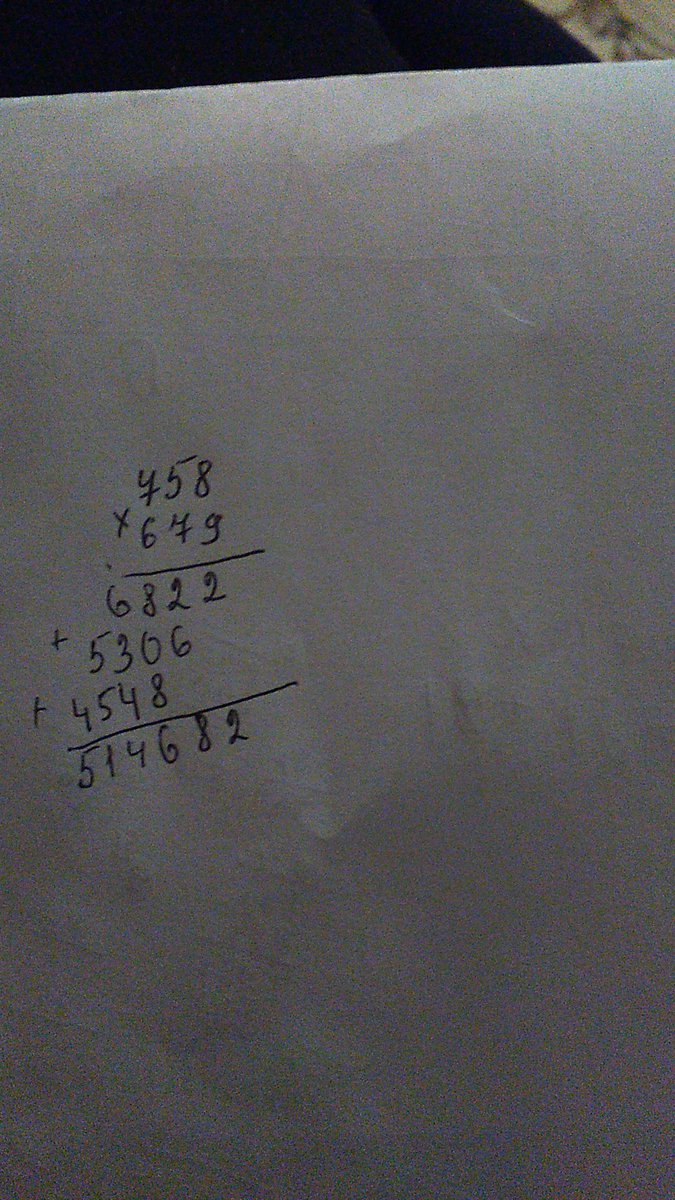 758
×679
6822
+ 5306
+ 4548
514682